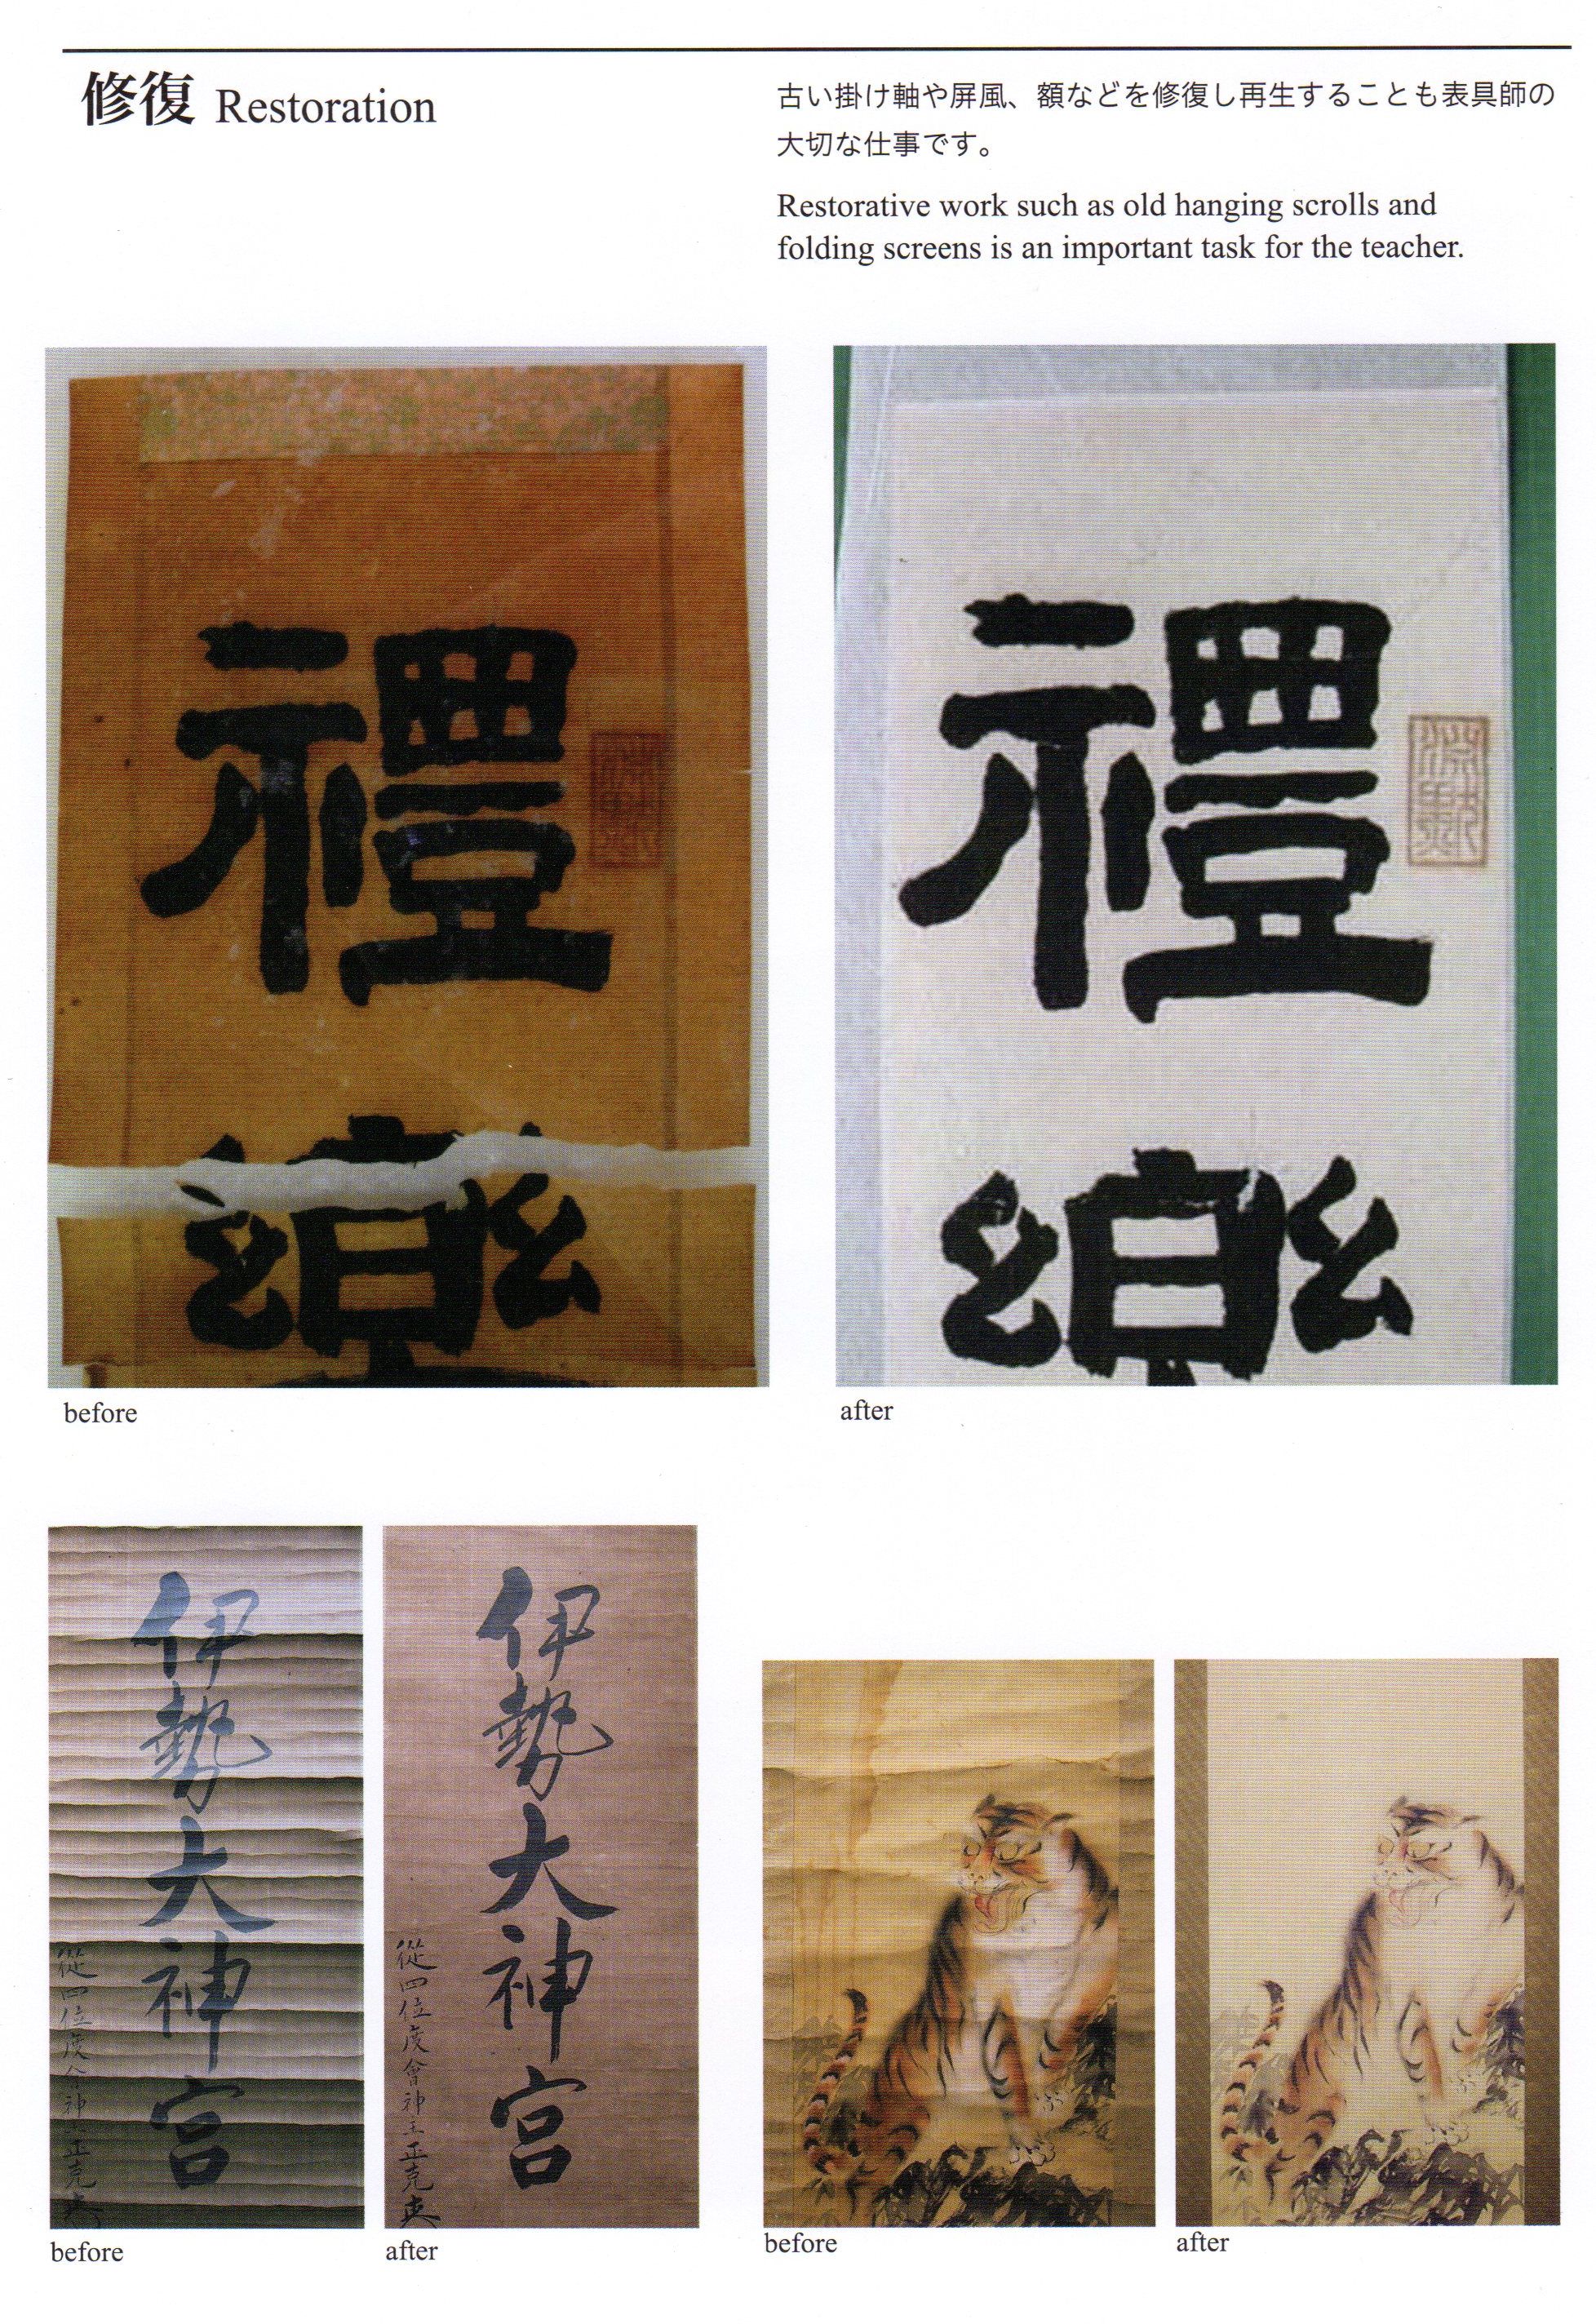 修復 Restoration
古い掛け軸や屏風、額などを修復し再生することも表具師の
大切な仕事です。
Restorative work such as old hanging scrolls and
folding screens is an important task for the teacher.
禮
樂
禮
樂
before
after
伊勢大神宮
從四位度会神主正克
伊勢大神宮
從四位度會神主正克
before
after
before
after